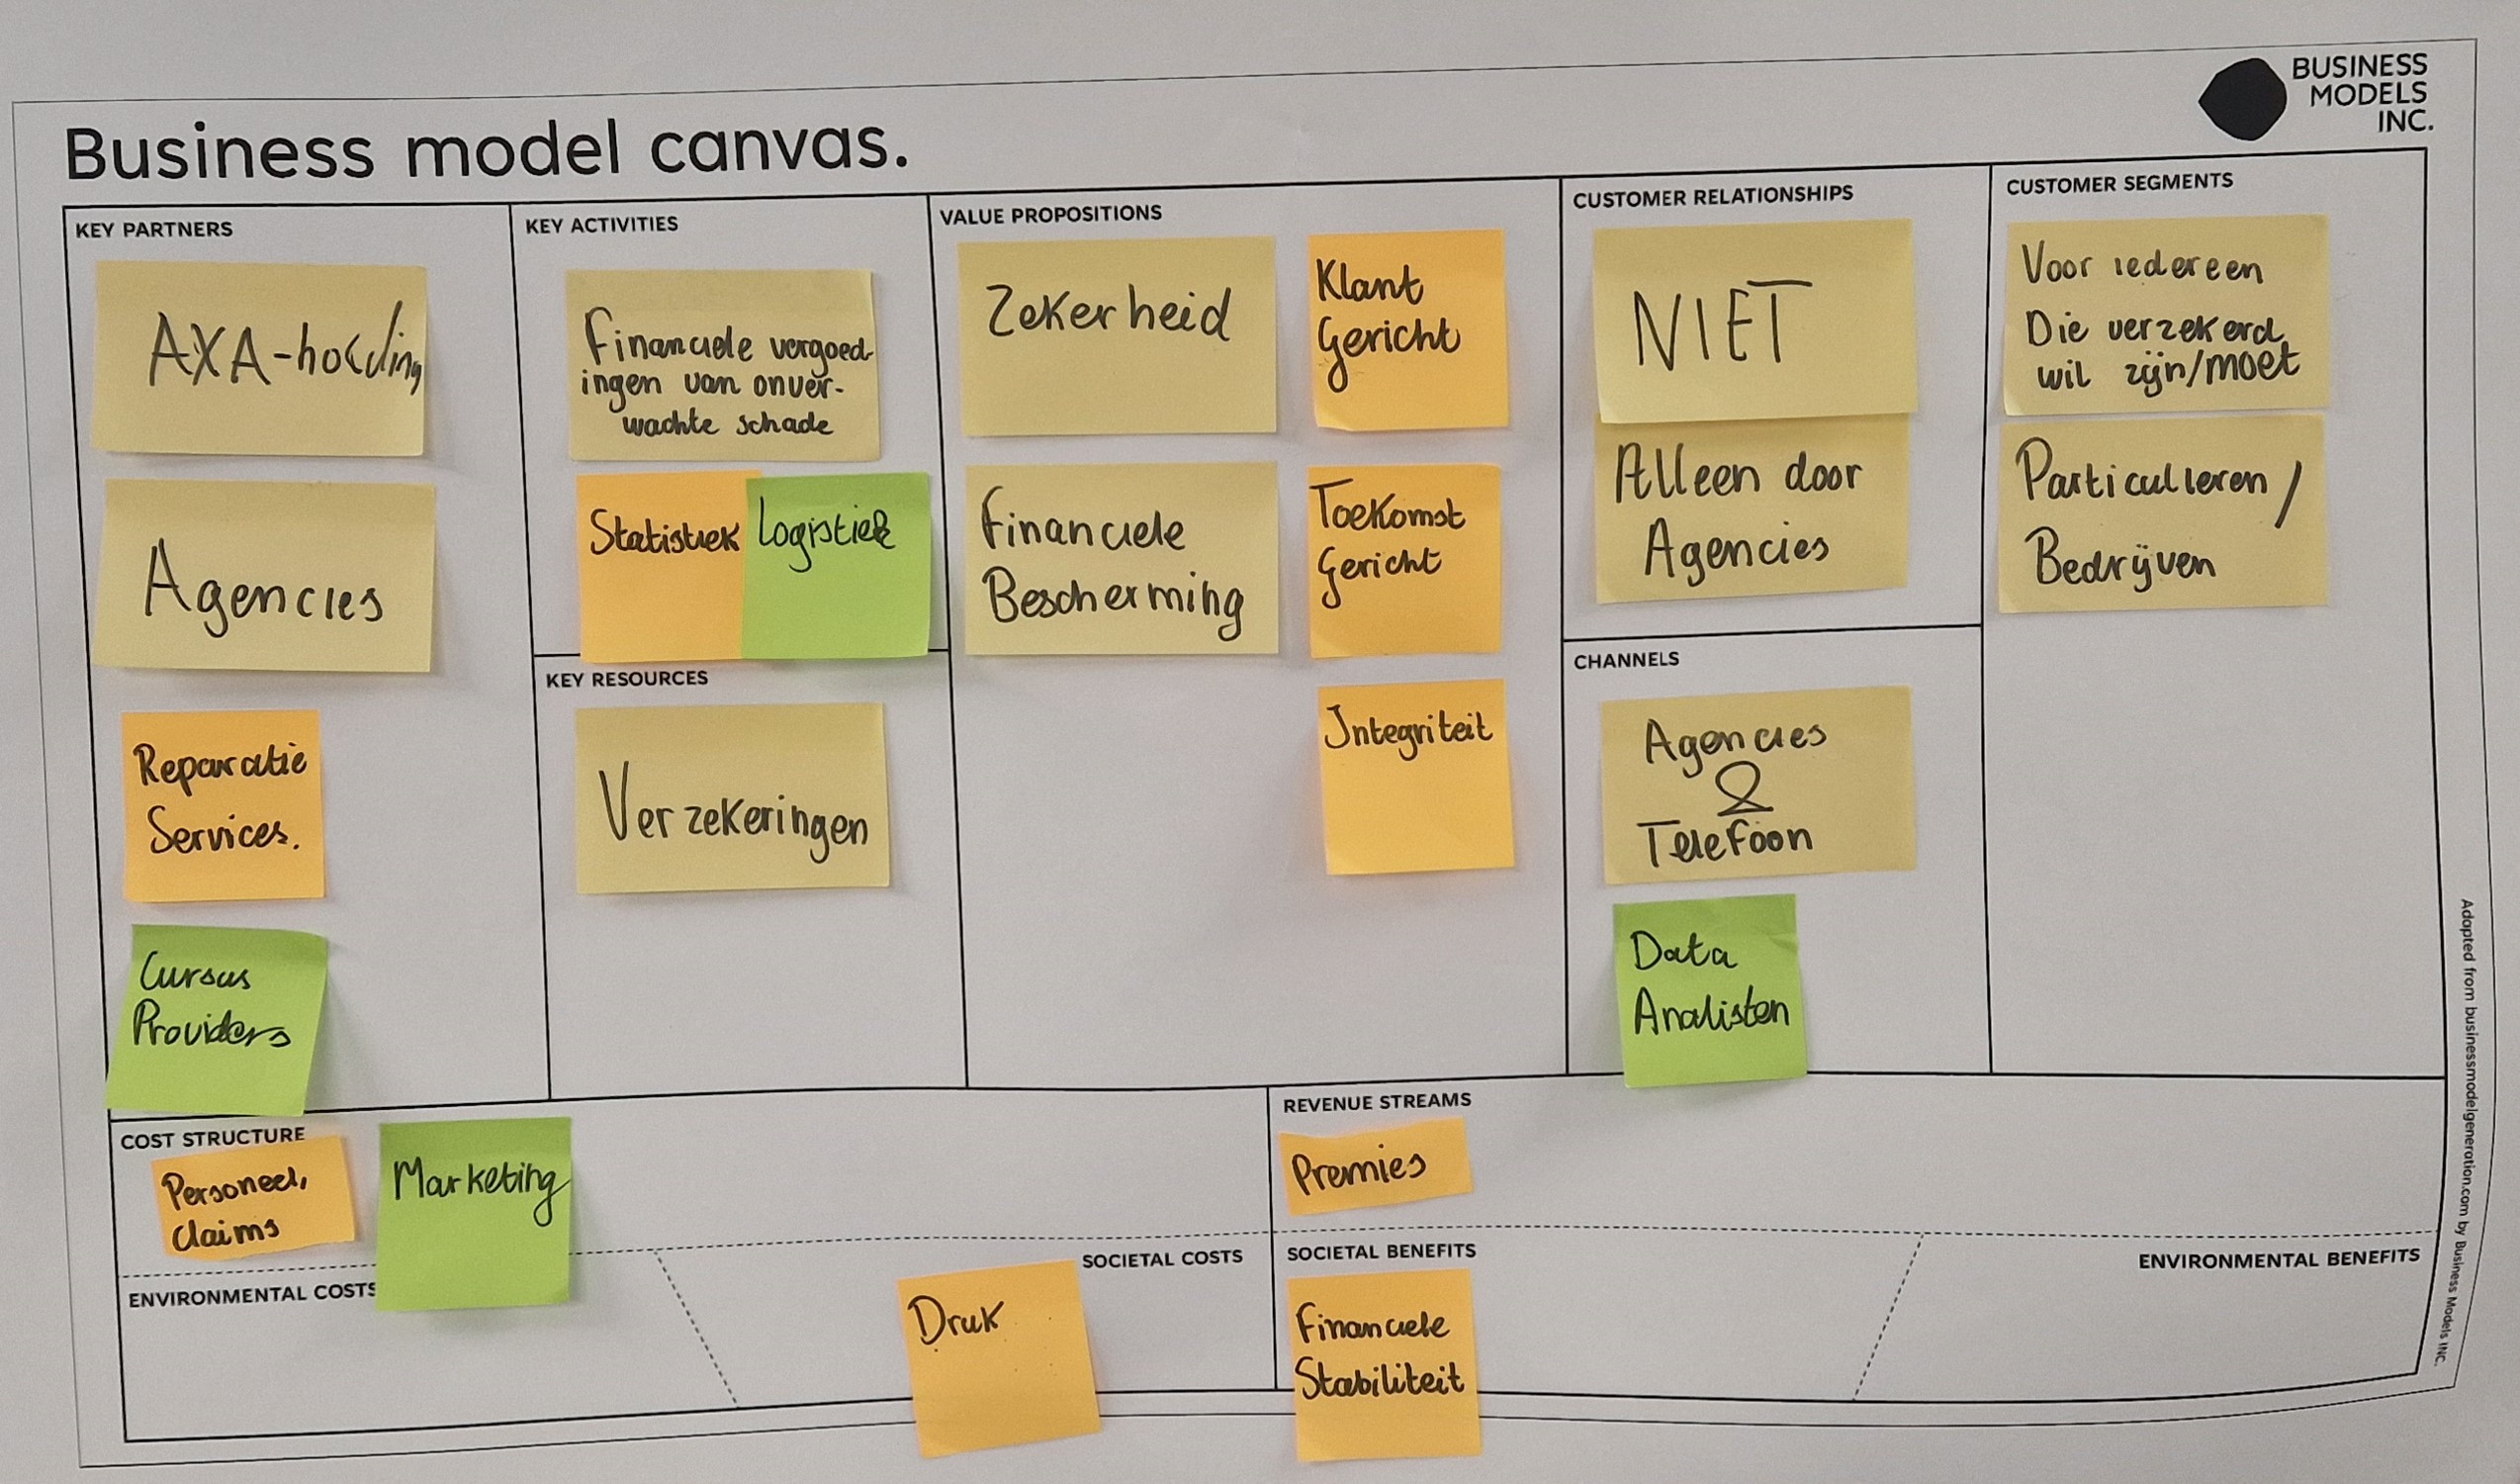 BUSINESS
MODELS
INC.
Business model canvas.
KEY PARTNERS
AXA-holding
Agencies
Reparatie
Services.
Cursus
Providers
KEY ACTIVITIES
Financiele vergoed-
ingen van onver-
wachte schade
Statistiek
Logistiek
KEY RESOURCES
Verzekeringen
VALUE PROPOSITIONS
Zekerheid
Klant
Gericht
Financiele
Bescherming
Toekomst
Gericht
Integriteit
CUSTOMER RELATIONSHIPS
NIET
Alleen door
Agencies
CHANNELS
Agencies
&
Telefoon
Data
Analisten
CUSTOMER SEGMENTS
Voor iedereen
Die verzekerd
wil zijn/moet
Particulieren /
Bedrijven
COST STRUCTURE
Personeel,
claims
Marketing
REVENUE STREAMS
Premies
ENVIRONMENTAL COSTS
SOCIETAL COSTS
Druk
SOCIETAL BENEFITS
Financiele
Stabiliteit
ENVIRONMENTAL BENEFITS
Adopted from businessmodelgeneration.com by Business Models INC.